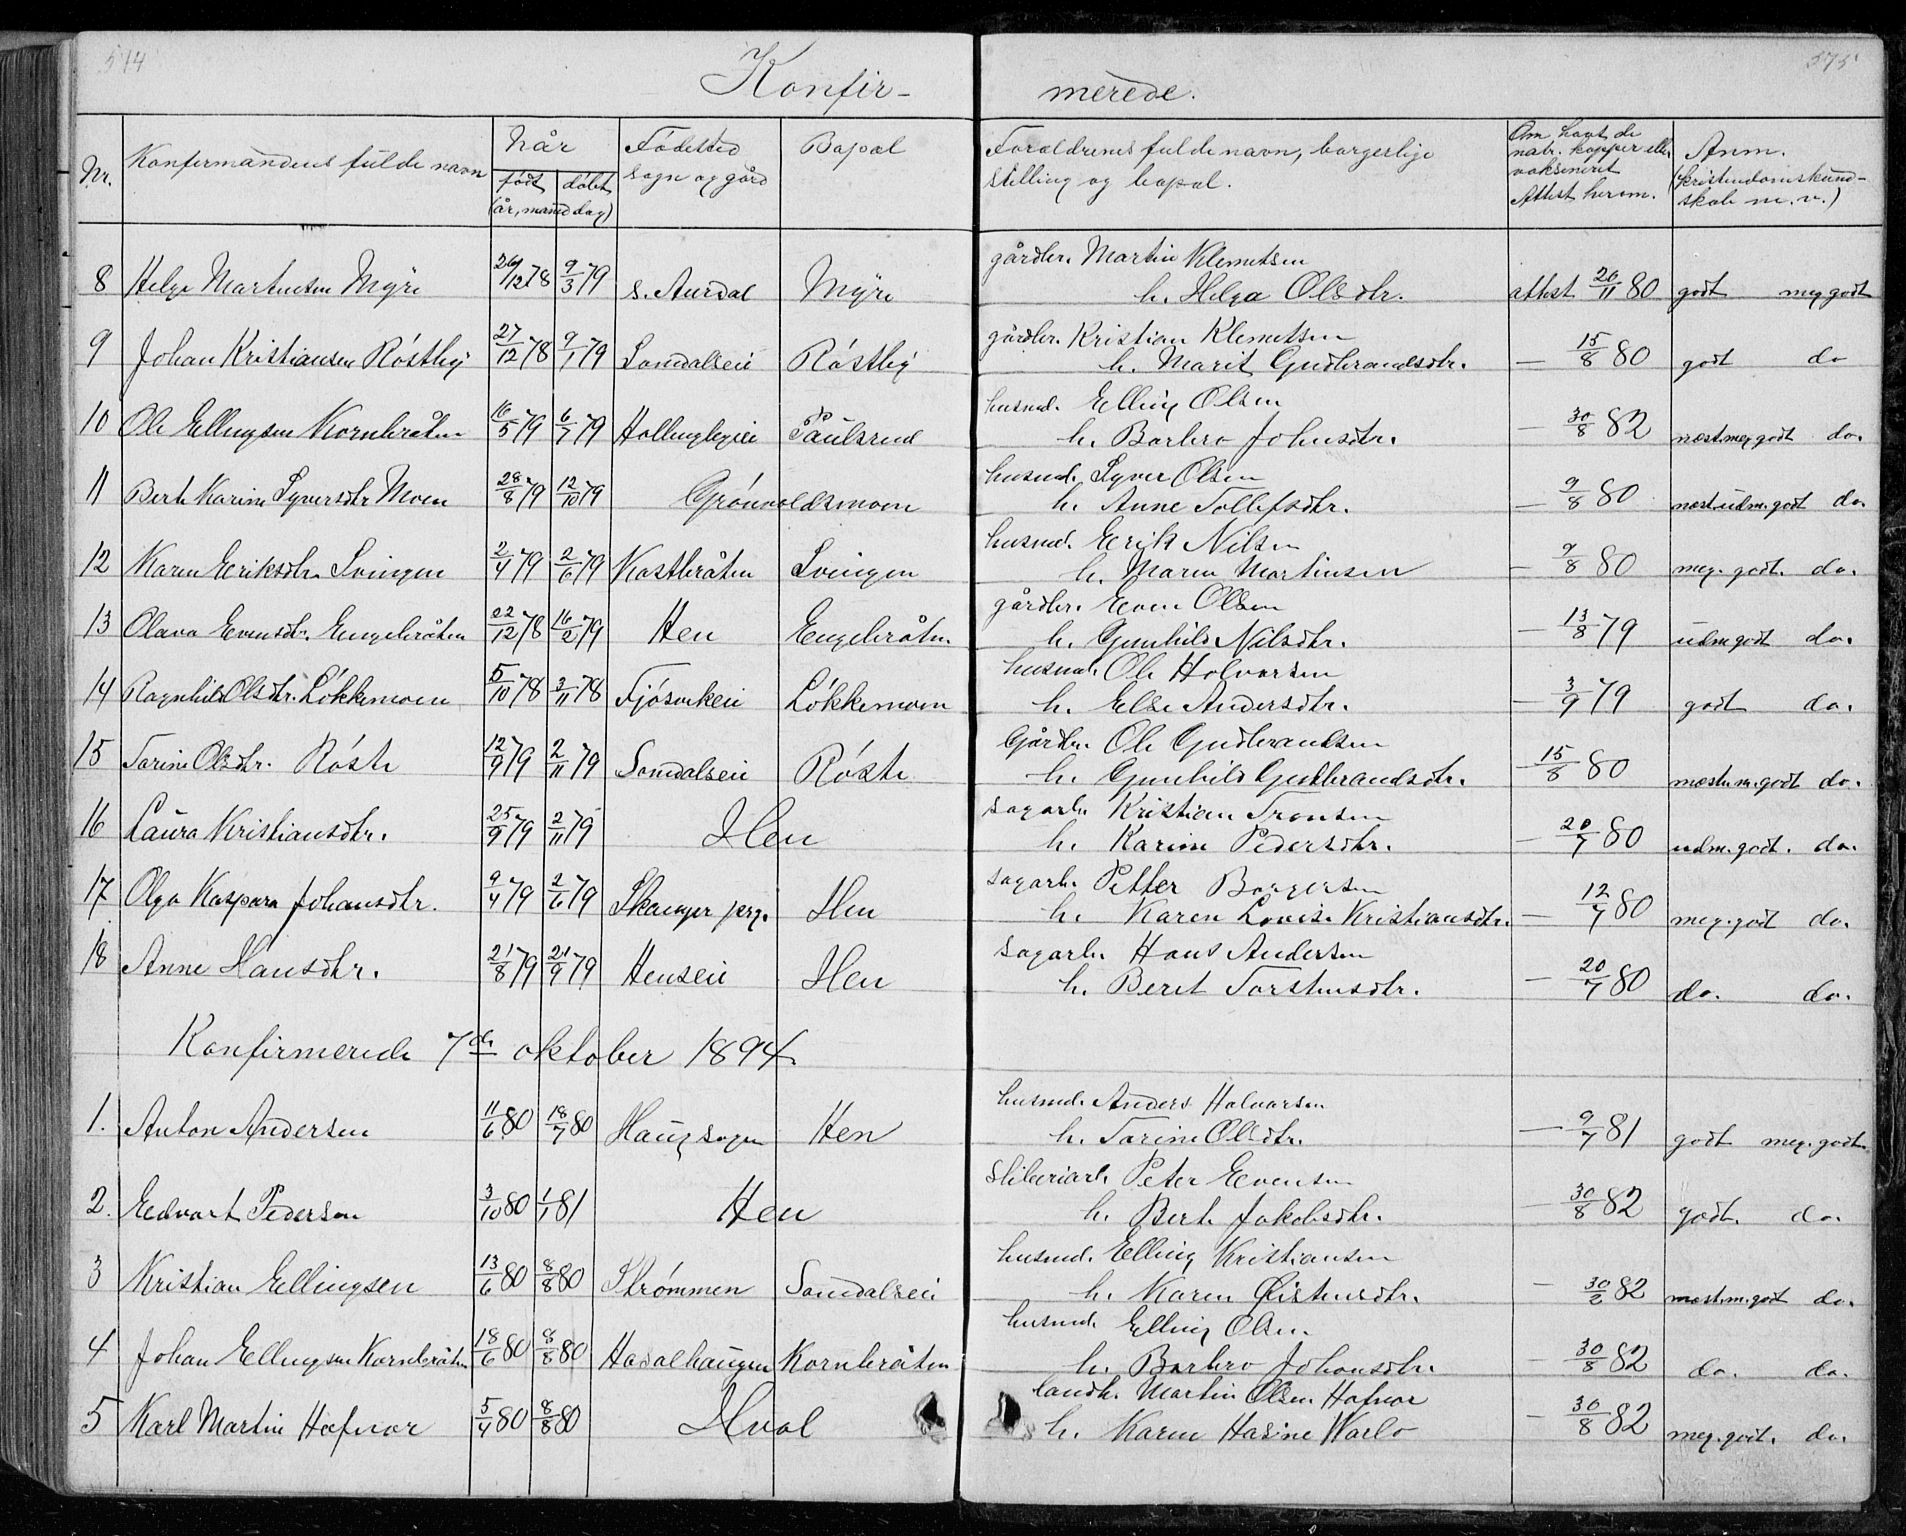 574 575
Konfir- merede.
Nr. Konfirmandens fulde navn Når født døbt (år, måned dag) Fødested sogn og gård Bopæl Forældrenes fulde navn, borgerlige stilling og bopæl. Om havt de nat. kopper eller vaksineret Attest herom. Anm. (kristendomskundskab m.v.)
gårdbr. Martin Klemetsen
8 Helge Martinsen Myre 26/12 78 9/3 79 s. Aurdal Myre h. Helga Olsdtr. attest 26/11 80 godt meg godt
gårdbr. Kristian Klemetsen
9 Johan Kristiansen Røstby 27/12 78 9/1 79 Somdalseie Røstby h. Marit Gudbrandsdtr. — 15/8 80 godt do
husmd. Elling Olsen
10 Ole Ellingsen Kornbråten 16/5 79 6/7 79 Hollingbyeie Paulsrud h. Barbro Johnsdtr. — 30/8 82 næst.meg godt do.
husmd. Syver Olsen
11 Berte Karine Syversdtr Moen 28/8 79 12/10 79 Grönvoldsmoen h. Anne Tollefsdtr. — 9/8 80 næst.udm.godt do.
husmd. Eerik Nilsen
12 Karen Eeriksdtr. Svingen 2/4 79 2/6 79 Kastbråten Svingen h. Maren Martinsen — 9/8 80 meg. godt. do.
gårdbr. Even Olsen
13 Olava Evensdtr. Engebråten 22/12 78 16/2 79 Hen Engebråten. h. Gunhild Nilsdtr. — 13/8 79 udm godt do.
husmd. Ole Halvorsen
14 Ragnhild Olsdtr. Løkkemoen 5/10 78 3/11 78 Fjösvikeie Løkkemoen h. Else Andersdtr. — 3/9 79 godt do.
Gårdbr. Ole Gudbrandsen
15 Torine Olsdtr. Röste 12/9 79 2/11 79 Somdalseie Röste h. Gunhild Gudbrandsdtr. — 15/8 80 næst.m.godt do.
sagarb. Kristian Tronsen
16 Laura Kristiansdtr. 25/9 79 2/11 79 Hen h. Karine Pedersdtr. — 20/7 80 udm.godt. do.
sagarb. Petter Borgersen
17 Olga Kaspara Johansdtr. 9/4 79 2/6 79 Skauger prg. Hen h. Karen Lovise Kristiansdtr. — 12/7 80 meg.godt do.
sagarb. Hans Andersen
18 Anne Hansdtr. 21/8 79 21/9 79 Henseie Hen h. Berit Torstensdtr. — 20/7 80 do. do.
Konfirmerede 7de oktober 1894.
husmd. Anders Halvorsen
1. Anton Andersen 11/6 80 18/7 80 Haugsogn Hen h. Torine Olsdtr. — 9/7 81 godt meg.godt
sliberiarb. Peter Evensen
2. Eedvart Pedersen 3/10 80 1/1 81 Hen h. Berte Jakobsdtr. — 30/8 82 godt. do.
husmd. Elling Kristiansen
3 Kristian Ellingsen 13/6 80 8/8 80 Strømmen Somdalseie h. Karen Øistensdtr. — 30/2 82 næst.m.godt do.
husmd. Elling Olsen.
4 Johan Ellingsen Kornbråten 18/6 80 8/8 80 Hasalhaugen Kornbråten h. Barbro Johansdtr. — 30/8 82 do. do.
landh. Martin Olsen Hafnor
5 Karl Martin Hafnor 5/4 80 8/8 80 Hval h. Karen Hasine Warlo — 30/8 82 meg.godt. do.